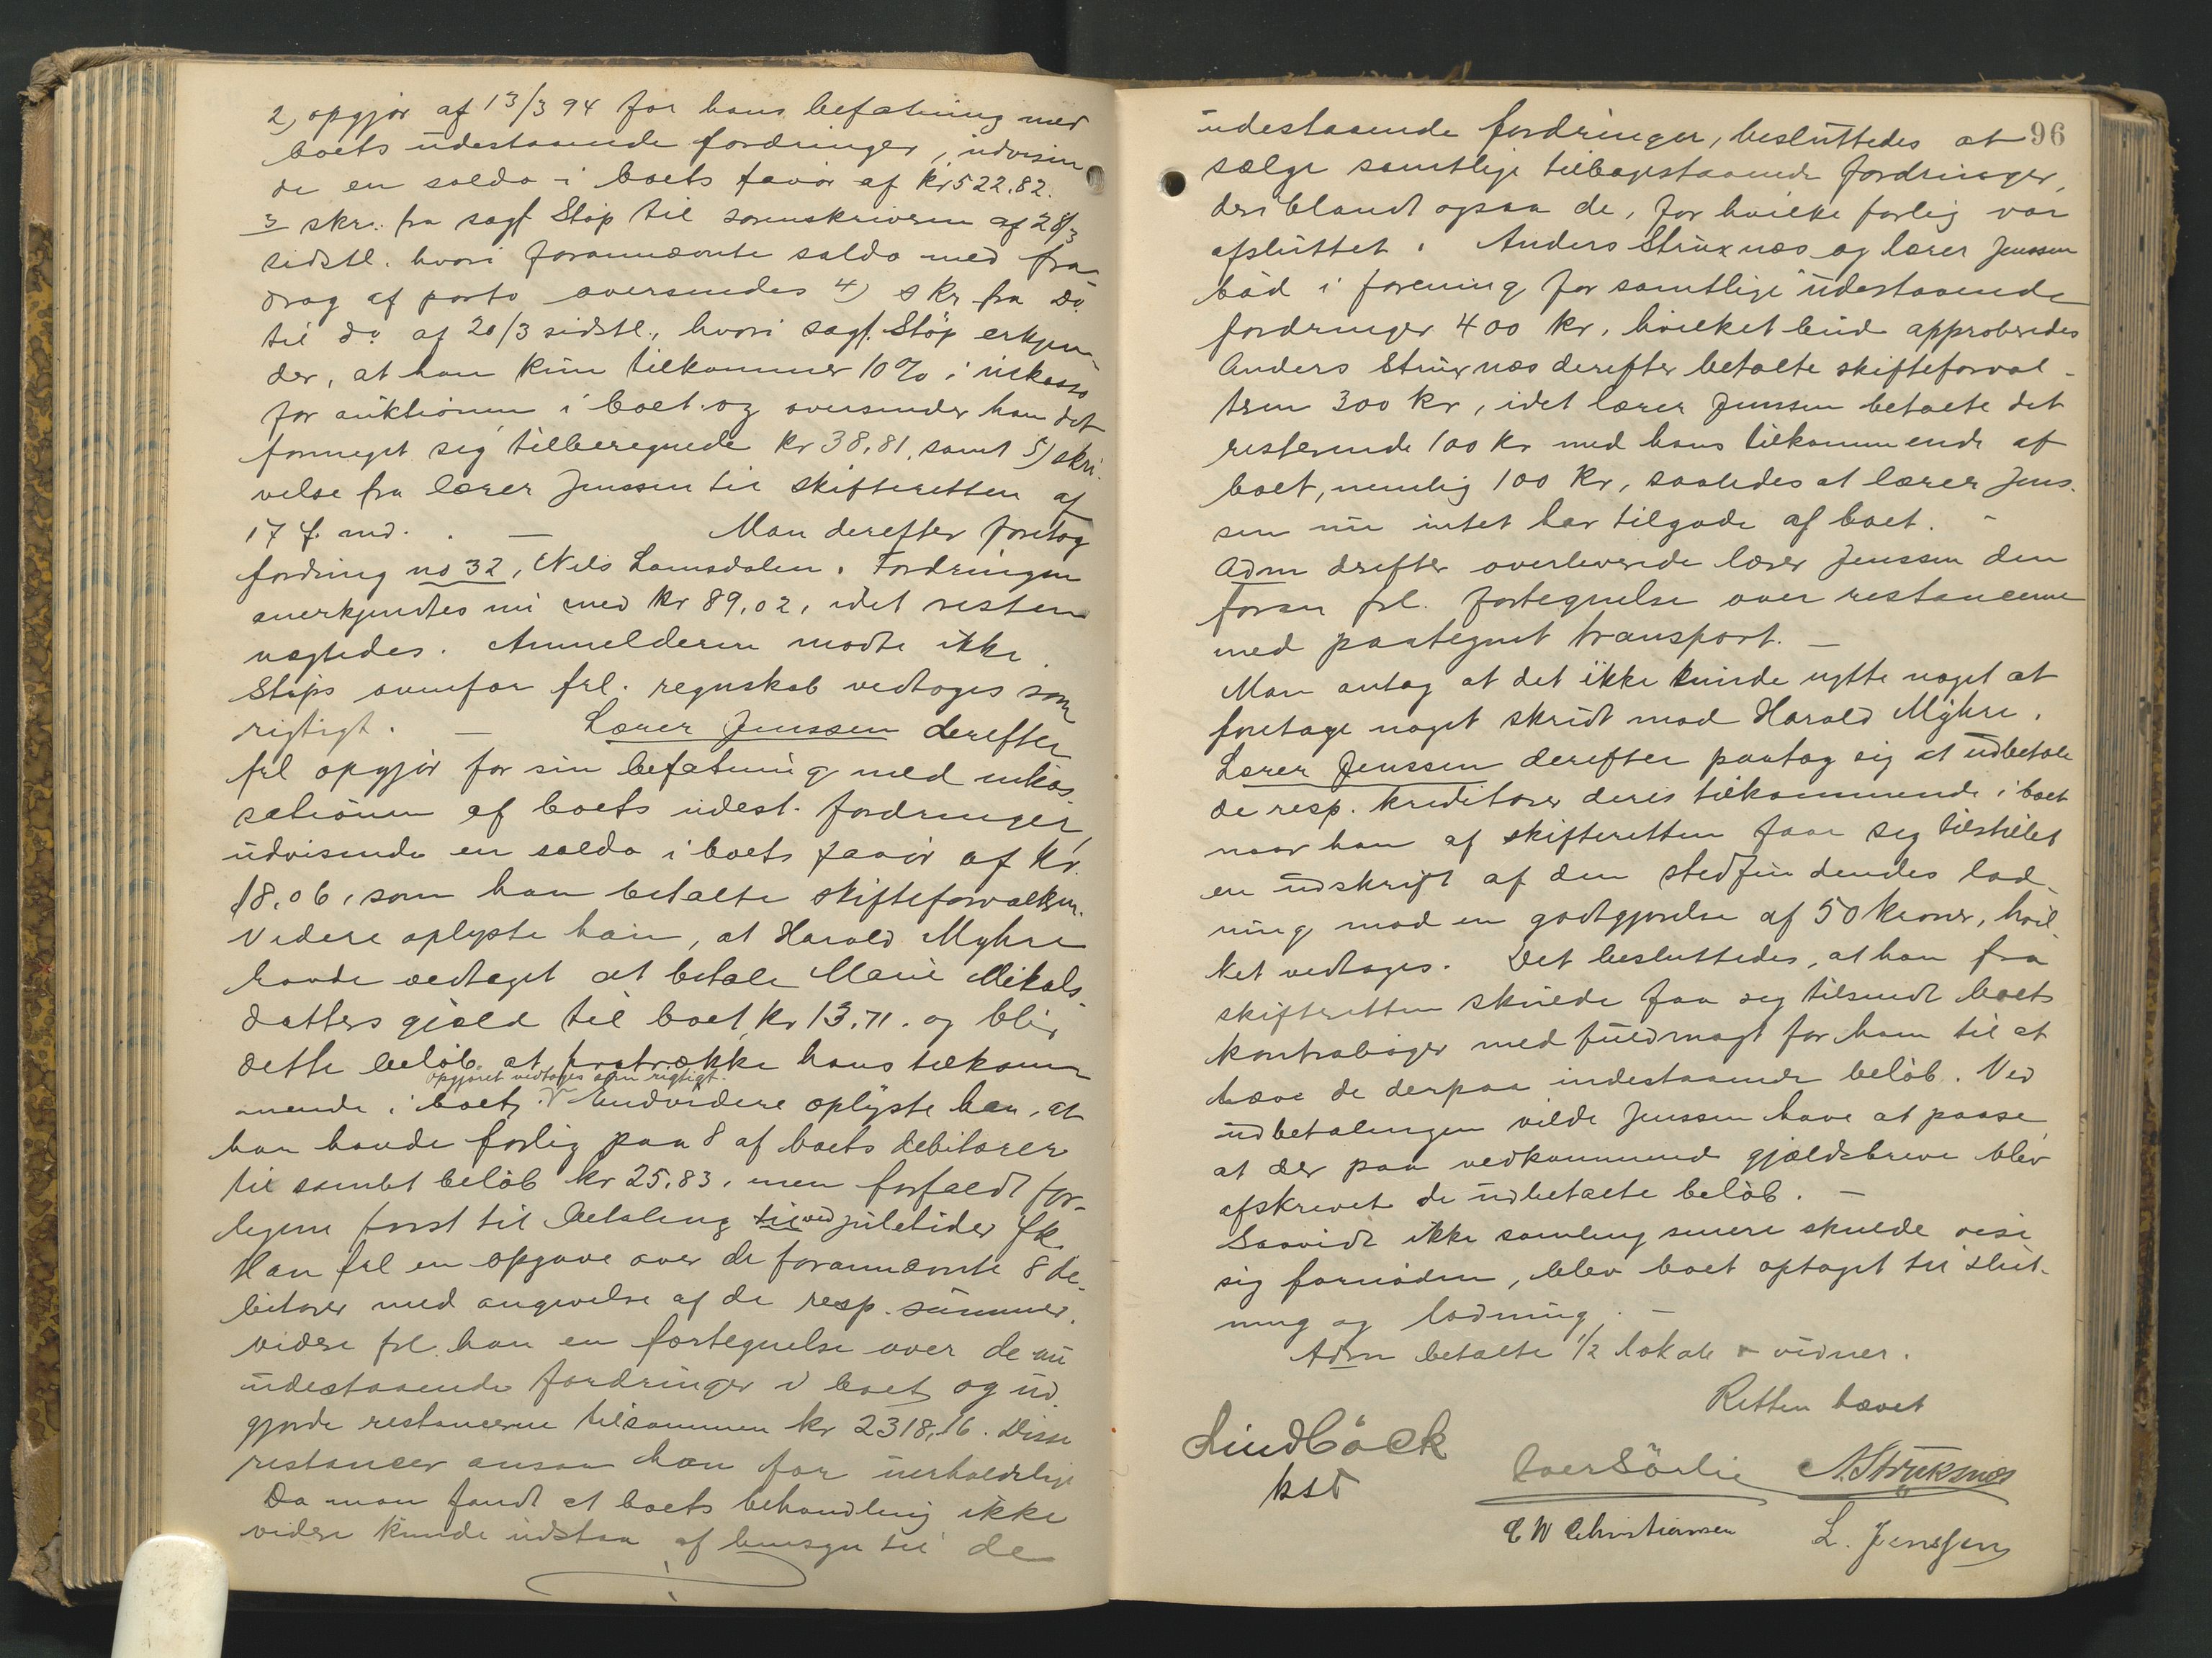 2, opgjør af 13/3 94 for hans befatning med
boets udestaaende fordringer, udvisen
de en saldo i boets favør af kr 522.82.
3 skr. fra sagf Støp til sorenskriveren af 28/3
sidstl. hvori forannævnte saldo med fra-
drag af porto oversendes 4) skr fra Do.
til do. af 20/3 sidstl., hvori sagf. Støp erkjen-
der, at han kun tilkommer 10% i inkasso
for auktionen i boet og oversender han det
formeget sig tilberegnede kr 38,81, samt 5) skri-
velse fra lærer Jenssen til skifteretten af
17 f. md. . — Man derefter foretog
fordring no 32, Nils Lamsdalen. Fordringen
anerkjendtes nu med kr 89,02, idet resten
nægtedes. Anmelderen mødte ikke.
Støps ovenfor frl. regnskab vedtoges som
rigtigt. — Lærer Jenssen derefter
frl opgjør for sin befatning med inkas-
sationen af boets udest. fordringer,
udvisende en saldo i boets favør af kr.
18.06, som han betalte skifteforvalteren.
Videre oplyste han, at Harald Myhre
havde vedtaget at betale Marie Mikals-
datters gjæld til boet, kr 13.71. og blir
dette beløb at fratrække hans tilkom-
opgjøret vedtoges som rigtigt.
mende i boet. V Endvidere oplyste han, at
han havde forlig paa 8 af boets debitorer
til samlet beløb kr 25.83, men forfaldt for-
ligene først til betaling til ved juletider fk.
Han frl en opgave over de forannævnte 8 de-
bitorer med angivelse af de resp. summer.
videre frl. han en fortegnelse over de nu
udestaaende fordringer i boet, og ud-
gjorde restancerne tilsammen kr 2318,16. Disse
restancer ansaa han for uerholdelige
Da man fandt at boets behandling ikke
videre kunde udstaa af hensyn til de
96
udestaaende fordringer, besluttedes at
sælge samtlige tilbagestaaende fordringer,
deriblandt ogsaa de, for hvilke forlig var
afsluttet. Anders Struxnæs og lærer Jenssen
bød i forening for samtlige udestaaende
fordringer 400 kr, hvilket bud approberedes
Anders Struxnæs derefter betalte skifteforval-
teren 300 kr, idet lærer Jenssen betalte det
resterende 100 kr med hans tilkommende af
boet, nemlig 100 kr, saaledes at lærer Jens-
sen nu intet har tilgode af boet. -
Adm derefter overleverede lærer Jenssen den
foran frl. fortegnelse over restancerne
med paategnet transport. —
Man antog at det ikke kunde nytte noget at
foretage noget skridt mod Harald Myhre.
Lærer Jenssen derefter paatog sig at udbetale
de resp. kreditorer deres tilkommende i boet
naar han af skifteretten faar sig tilstillet
en udskrift af den stedfindendes lod-
ning mod en godtgjørelse af 50 kroner, hvil-
ket vedtoges. Det besluttedes, at han fra
skifteretten skulde faa sig tilsendt boets
kontrabøger med fuldmagt for ham til at
hæve de derpaa indestaaende beløb. Ved
udbetalingen vilde Jenssen have at paase,
at der paa vedkommende gjældsbreve blev
afskrevet de udbetalte beløb. —
Saavidt ikke samling senere skulde vise
sig fornøden, blev boet optaget til slut-
ning og lodning. —
Adm betalte 1/2 lokale & vidner.
Retten hævet
Lindböck
kst
Iver Sörlie A. Strüksnæs
C W Christiansen L. Jenssen